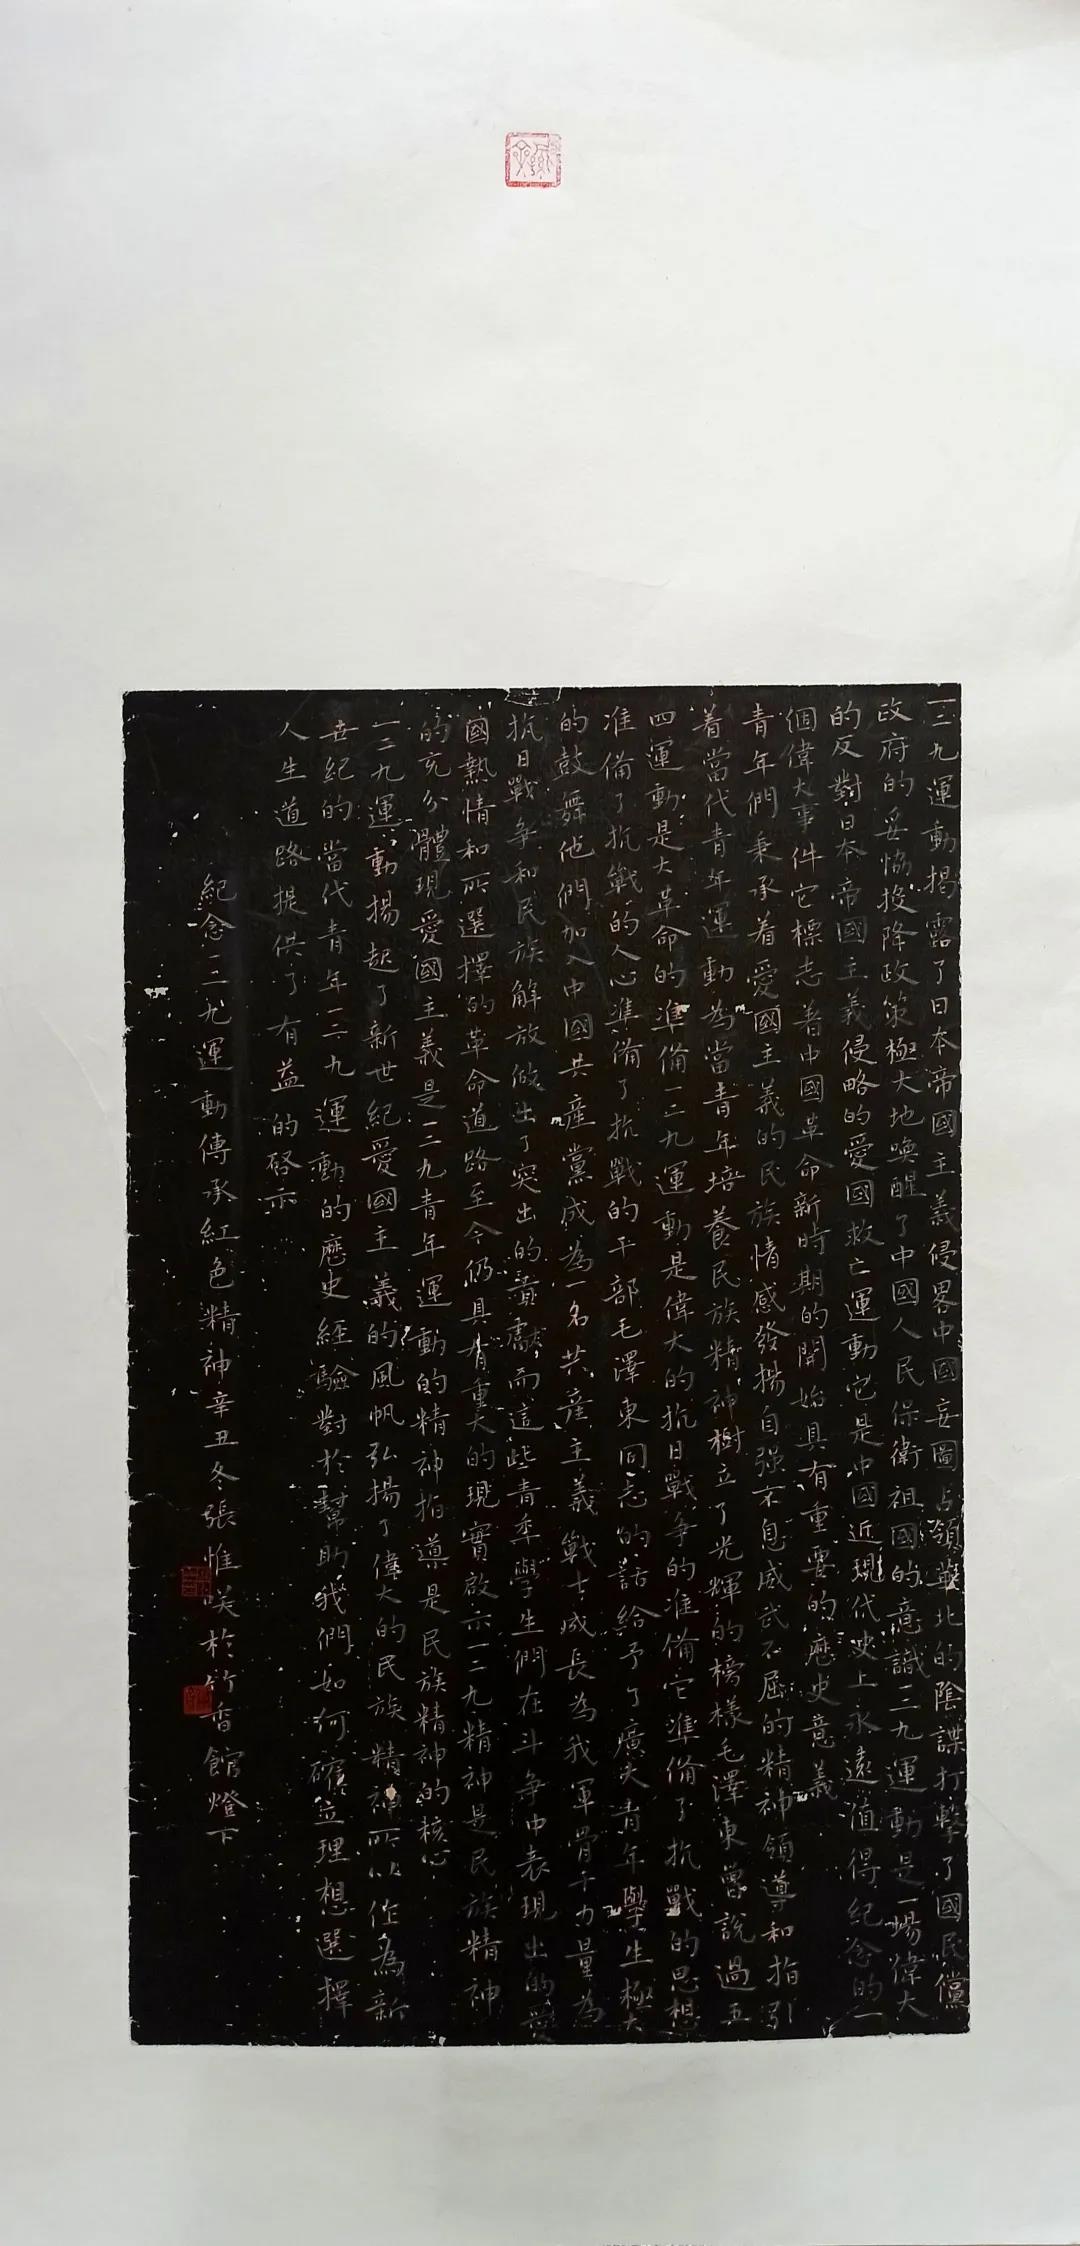 一二九運動揭露了日本帝國主義侵畧中國妄圖占領華北的陰謀打擊了國民儻
政府的妥協投降政策極大地喚醒了中國人民保衛祖國的意識一二九運動是一場偉大
的反對日本帝國主義侵略的愛國救亡運動它是中國近現代史上永遠值得紀念的一
個偉大事件它標志着中國革命新時期的開始具有重要的歷史意義
青年們秉承着愛國主義的民族情感發揚自强不息威武不屈的精神領導和指引
着當代青年運動為當青年培養民族精神樹立了光輝的榜樣毛澤東曾說過五
四運動是大革命的準備一二九運動是偉大的抗日戰争的准備它準備了抗戰的思想
准備了抗戰的人心準備了抗戰的干部毛澤東同志的話給予了廣大青年學生極大
的鼓舞他們加入中國共産黨成為一名共産主義戰士成長為我軍骨干力量為
抗日戰争和民族解放做出了突出的貢獻而這些青年學生們在斗争中表現出的愛
國熱情和所選擇的革命道路至今仍具有重大的現實啟示一二九精神是民族精神
的充分體現愛國主義是一二九青年運動的精神指導是民族精神的核心
一二九運動揚起了新世紀愛國主義的風帆弘揚了偉大的民族精神所以作為新
世紀的當代青年一二九運動的歷史經驗對於幫助我們如何確立理想選擇
人生道路提供了有益的啓示
紀念一二九運動傳承紅色精神辛丑冬張惟咲於竹香館燈下